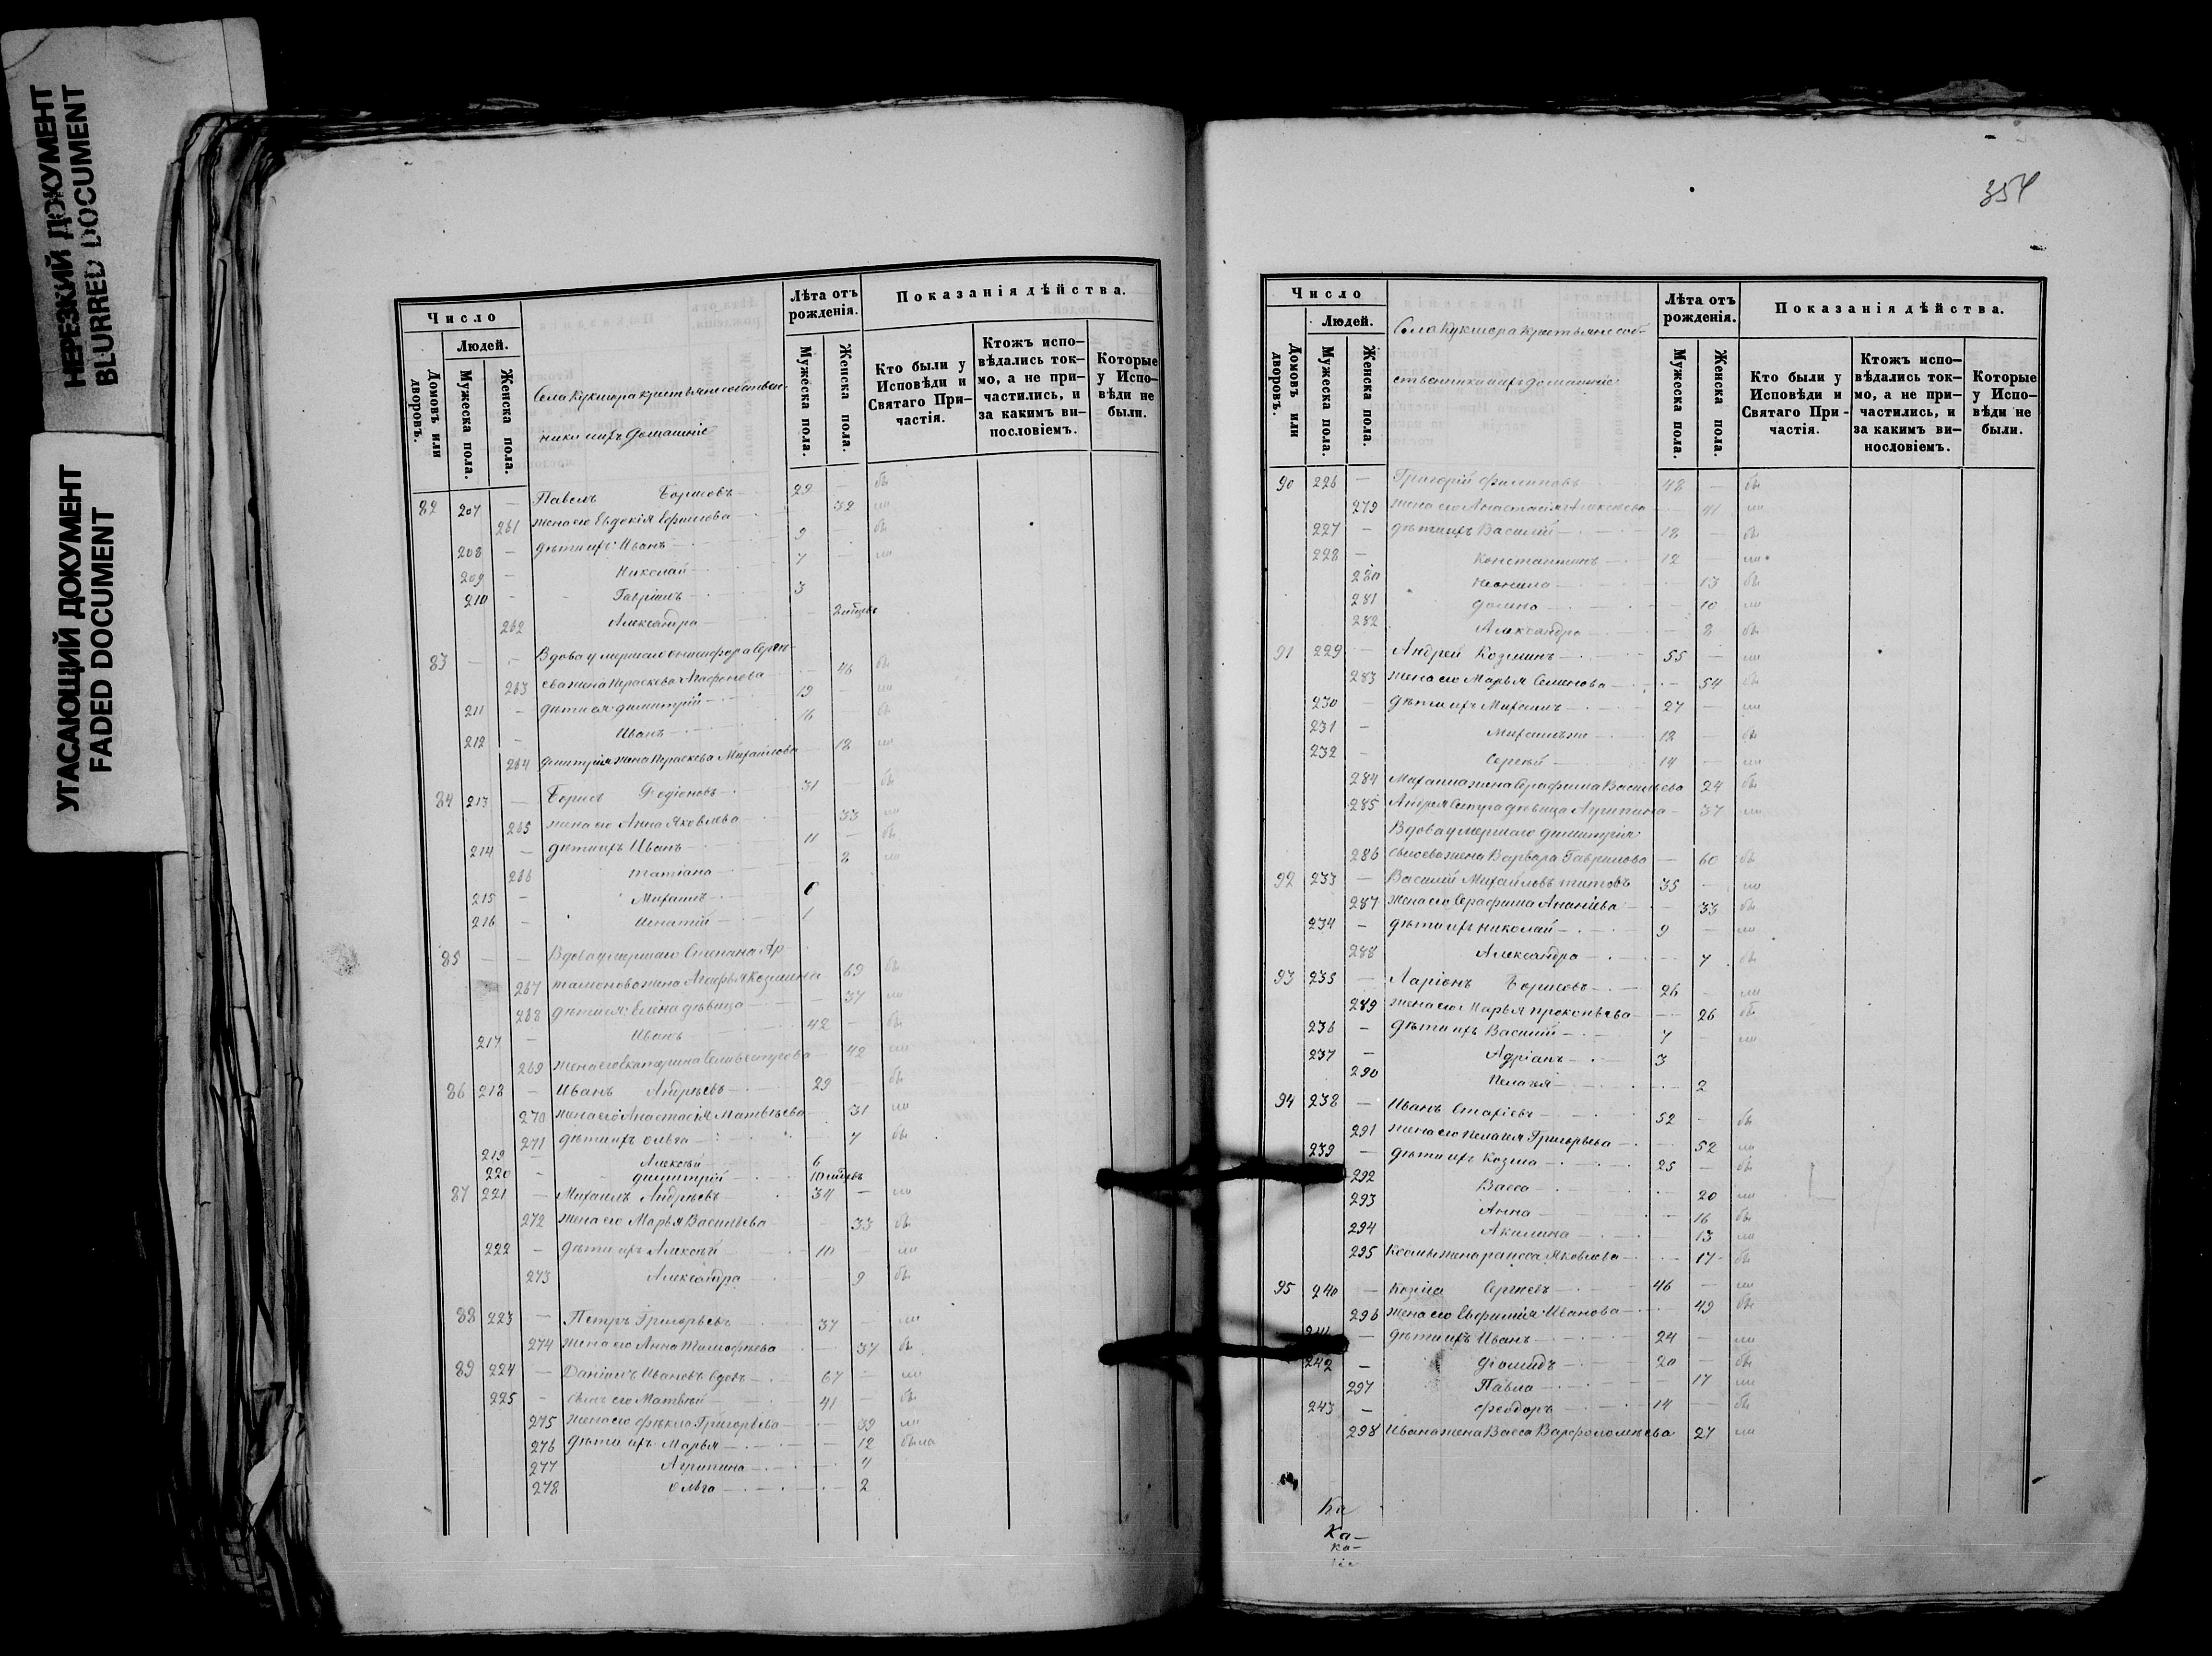 НЕРЕЗКИЙ ДОКУМЕНТ
BLURRED DOCUMENT
УГАСАЮЩИЙ ДОКУМЕНТ
FADED DOCUMENT
Число
Людей.
Домовъ или дворовъ.
Мужеска пола.
Женска пола.
Села Кукшора крестьяне собствен-
ники и ихъ домашніе
Лѣта отъ рожденія.
Мужеска пола.
Женска пола.
Показанія дѣйства.
Кто были у Исповѣди и Святаго При-частія.
Ктожъ испо-вѣдались ток-мо, а не при-частились, и за какимъ ви-нословіемъ.
Которые у Испо-вѣди не были.
82 207 — Павелъ Борисовъ 29 — бы
261 жена его Евдокія Ефимова 32 ли
208 — дѣти ихъ Иванъ 9 — бы
209 — Николай 7 — ли
210 — Гавріилъ 3
262 Александра —
83 — — Вдова умершаго
263 жена Параскева Агафонова — 46 бы
211 — дѣти ея: Димитрій 19 ли
212 — Иванъ 16 бы
264 Димитрія жена Параскева Михайлова 18 ли
84 213 — Борисъ Родіоновъ 31 — бы
265 жена его Анна Яковлева 33 ли
214 — дѣти ихъ Иванъ 11 — бы
266 Татіана 8 ли
215 — Михаилъ
216 — Игнатій 1
85 — — Вдова умершаго Степана Ар-
267 тамонова жена Агафья Козмина 69 бы
268 дѣти ея: Елена дѣвица — 37 ли
217 — Иванъ 42 — бы
269 жена его Екатерина Селивестрова 42 ли
86 218 — Иванъ Андреевъ 29 — бы
270 жена его Анастасія Матвѣева 31 ли
271 дѣти ихъ Ольга — 7 бы
219 — Алексѣй 6
220 — Димитрій
87 221 — Михаилъ Андреевъ 34 — ли
272 жена его Марья Васильева — 33 бы
222 — дѣти ихъ Алексѣй 10 — ли
273 Александра 9 бы
88 223 — Петръ Григорьевъ 37 — ли
274 жена его Анна Тимофеева — 37 бы
89 224 — Даніилъ Ивановъ вдовъ 67 — ли
225 — сынъ его Матвѣй 41 — бы
275 жена его Фекла Григорьева — 39 ли
276 дѣти ихъ Марья — 12 была
277 Агрипина 4
278 Ольга 2
354
Число
Людей.
Домовъ или дворовъ.
Мужеска пола.
Женска пола.
Села Кукшора крестьяне соб-
ственники и ихъ домашніе
Лѣта отъ рожденія.
Мужеска пола.
Женска пола.
Показанія дѣйства.
Кто были у Исповѣди и Святаго При-частія.
Ктожъ испо-вѣдались ток-мо, а не при-частились, и за какимъ ви-нословіемъ.
Которые у Испо-вѣди не были.
90 226 — Григорій Филиповъ 48 — бы
279 жена его Анастасія Алексеева 41 ли
227 — дѣти ихъ Василій 18 — бы
228 — Константинъ 12 ли
280 13 бы
281 10 ли
282 Александра — 8 бы
91 229 — Андрей Козминъ 55 — ли
283 жена его Марья Семенова — 54 бы
230 — дѣти ихъ Михаилъ 27 — ли
231 — 18 — бы
232 — Сергѣй 14 — ли
284 Михаила жена Серафима Васильева 24 бы
285 Андрея сестра дѣвица Агрипина — 37 ли
Вдова умершаго Димитрія
286 жена Варвара Гаврилова — 60 бы
92 233 — Василій Михайловъ Титовъ 35 — ли
287 жена его Серафима Ананіева — 33 бы
234 — дѣти ихъ Николай 9 — ли
288 Александра — 7 бы
93 235 — Ларіонъ Борисовъ 26 — ли
289 жена его Марья Прокопьева — 26 бы
236 — дѣти ихъ Василій 7 — ли
237 — Адріанъ 3
290 Пелагея 2
94 238 — Иванъ Стахіевъ 52 — бы
291 жена его Пелагея Григорьева — 52 ли
239 — дѣти ихъ Козма 25 — бы
292 Васса — 20 ли
293 Анна — 16 бы
294 Акилина — 13 ли
295 Космы жена Раисса Яковлева — 17 бы
95 240 — Козма Сергеевъ 46 — ли
296 жена его Евфимія Иванова — 49 бы
— дѣти ихъ Иванъ 24 — ли
242 — Діомидъ 20 — бы
297 Павла — 17 ли
243 — Феодоръ 14 — бы
298 Ивана жена Васса Варфоломеева 27 ли
Ка
Ка-
ка-